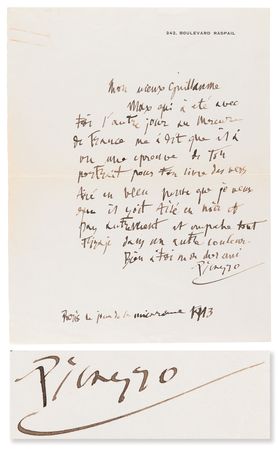 242, BOULEVARD RASPAIL
Mon vieux Guillaume
Max qui à été avec
toi l'autre jour au Mercure
de France me a dit que il à
vu une epreuve de ton
portrait pour ton livre des vers
tiré en bleu que je veux
que il soit tiré en noir et
pas autrement et empeche tout
tirage dans un autre couleur.
Bien à toi mon ami
Picasso
Paris le jour de la 1913
Picasso